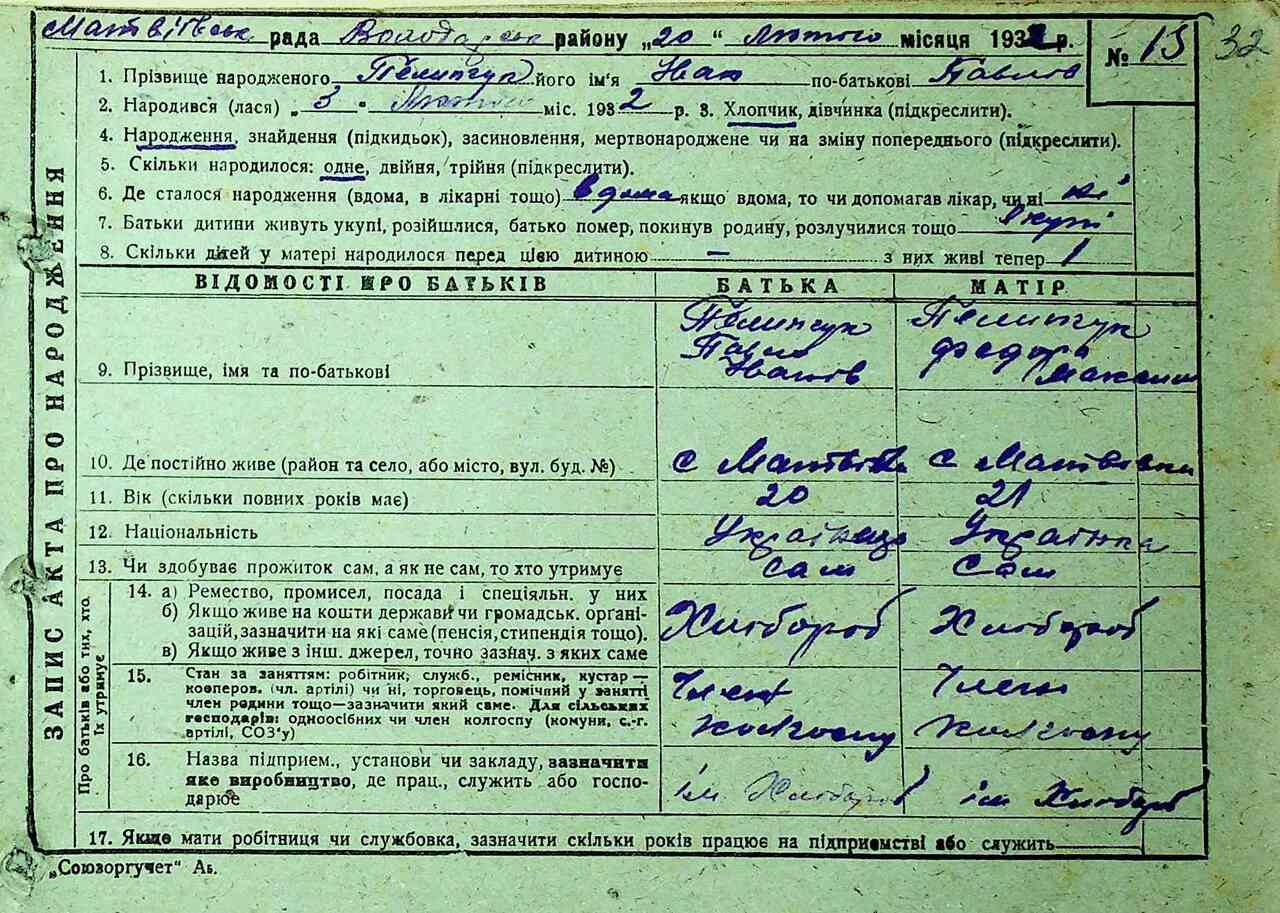 Матвіївськ рада Володарськ району „20“ Лютого місяця 1932 р. № 13 32
1. Прізвище народженого Пелипчук його ім'я Іван по-батькові Павлов
2. Народився (лася) „3“ Лютого міс. 1932 р. 3. Хлопчик, дівчинка (підкреслити).
4. Народження, знайдення (підкидьок), засиновлення, мертвонароджене чи на зміну попереднього (підкреслити).
5. Скільки народилося: одне, двійня, трійня (підкреслити).
6. Де сталося народження (вдома, в лікарні тощо) вдома якщо вдома, то чи допомагав лікар, чи ні ні
7. Батьки дитини живуть укупі, розійшлися, батько помер, покинув родину, розлучилися тощо Вкупі
8. Скільки дітей у матері народилося перед цією дитиною — з них живі тепер 1
ЗАПИС АКТА ПРО НАРОДЖЕННЯ
ВІДОМОСТІ ПРО БАТЬКІВ БАТЬКА МАТІР
9. Прізвище, імя та по-батькові
Пелипчук Павло Іванов
Пелипчук Федора Максим
10. Де постійно живе (район та село, або місто, вул. буд. №) с Матвіївк с Матвіївка
11. Вік (скільки повних років має) 20 21
12. Національність Українець Українка
13. Чи здобуває прожиток сам, а як не сам, то хто утримує сам сам
Про батьків або тих, хто їх утримує
14. а) Ремество, промисел, посада і спеціяльн. у них
б) Якщо живе на кошти держави чи громадськ. орґані-
зацій, зазначити на які саме (пенсія, стипендія тощо). Хлібороб Хлібороб
в) Якщо живе з інш. джерел, точно зазнач. з яких саме
15. Стан за заняттям: робітник, служб., ремісник, кустар —
коопéров. (чл. артілі) чи ні, торговець, помічний у занятті Член Член
член родини тощо—зазначити який саме. Для сільських
господарів: одноосібних чи член колгоспу (комуни, с.-г. колгоспу колгоспу
артілі, СОЗ'у)
16. Назва підприєм., установи чи закладу, зазначити
яке виробництво, де прац., служить або госпо-
дарює ім Хлібороб ім Хлібороб
17. Якщо мати робітниця чи службовка, зазначити скільки років працює на підприємстві або служить
„Союзоргучет“ Аь.